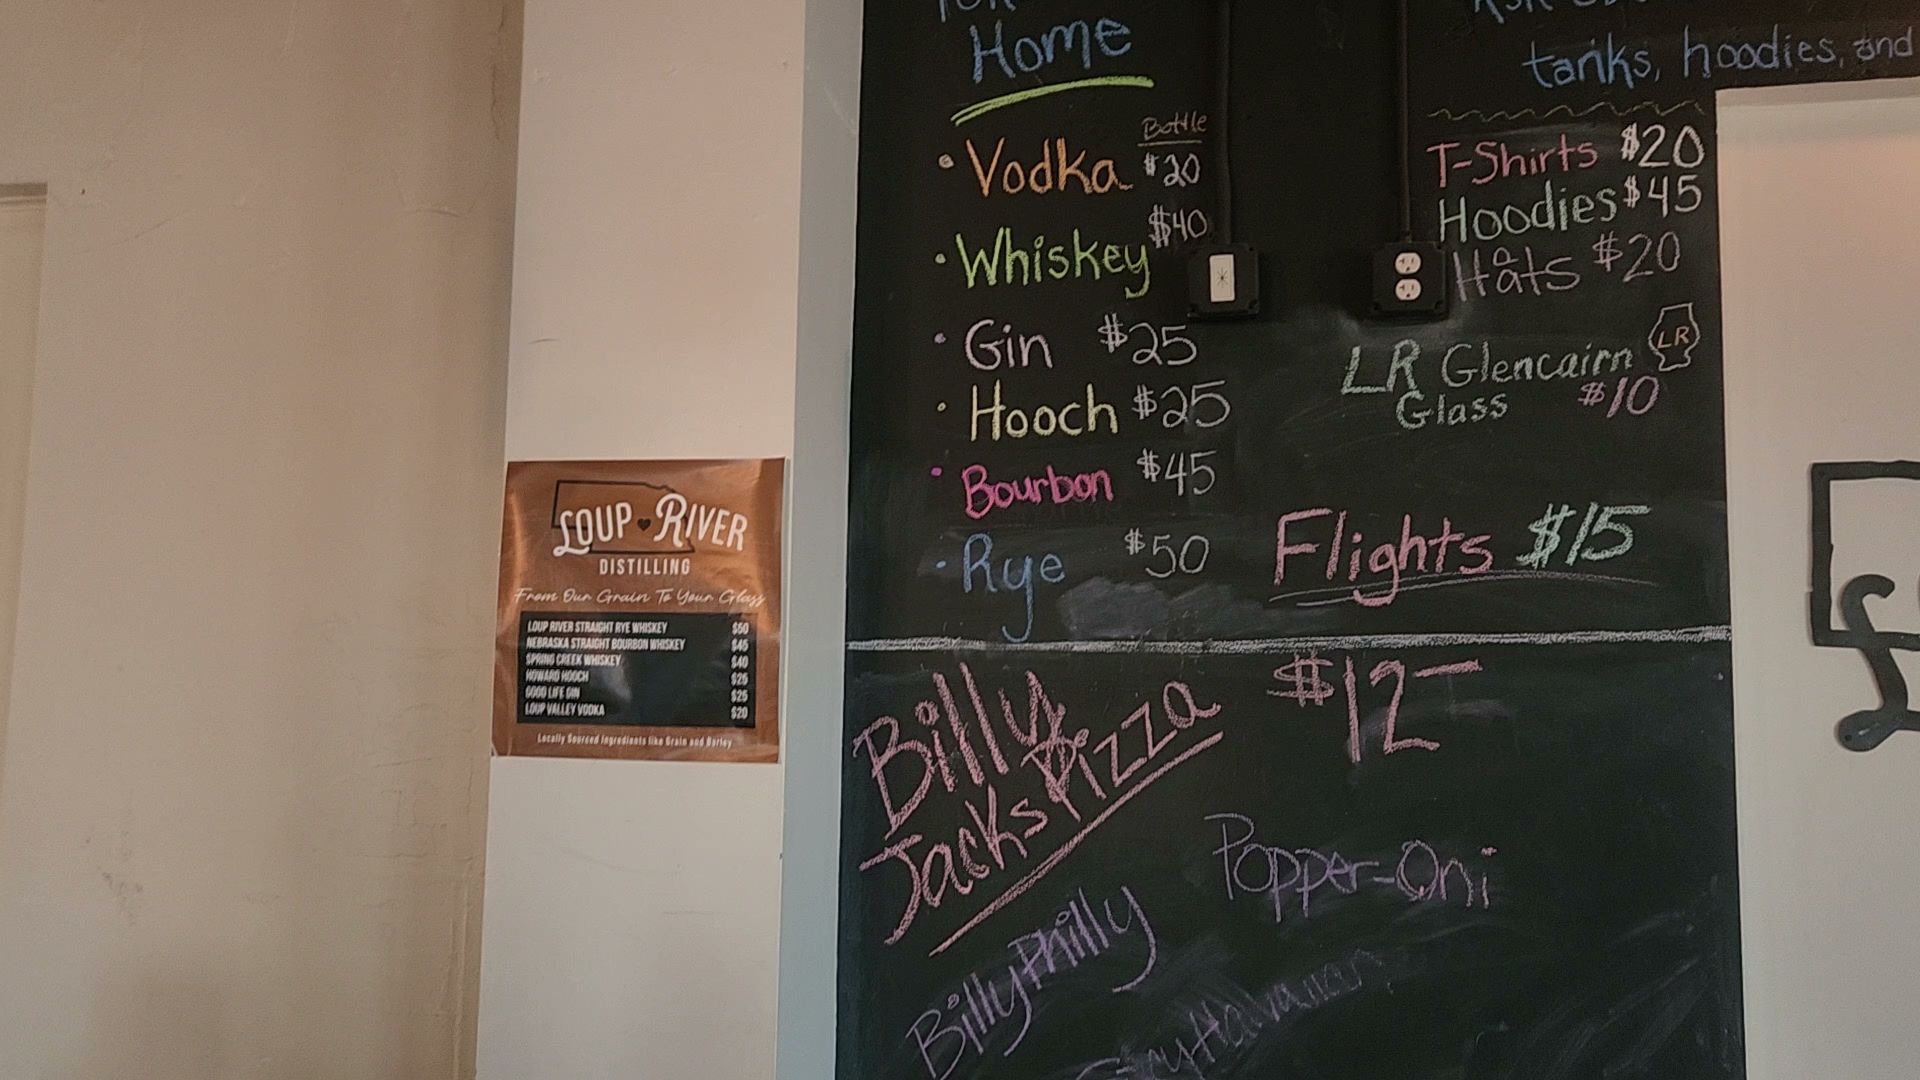 LOUP RIVER
DISTILLING
From Our Grain To Your Glass
LOUP RIVER STRAIGHT RYE WHISKEY $50
NEBRASKA STRAIGHT BOURBON WHISKEY $45
SPRING CREEK WHISKEY $40
HOWARD HOOCH $25
GOOD LIFE GIN $25
LOUP VALLEY VODKA $20
Locally Sourced Ingredients like Grain and Barley
Home
Bottle
• Vodka $20
• Whiskey $40
• Gin $25
• Hooch $25
• Bourbon $45
• Rye $50
tanks, hoodies, and
T-Shirts $20
Hoodies $45
Hats $20
LR Glencairn
Glass $10
LR
Flights $15
Billy
Jacks Pizza
$12
Popper-Oni
Billy Philly